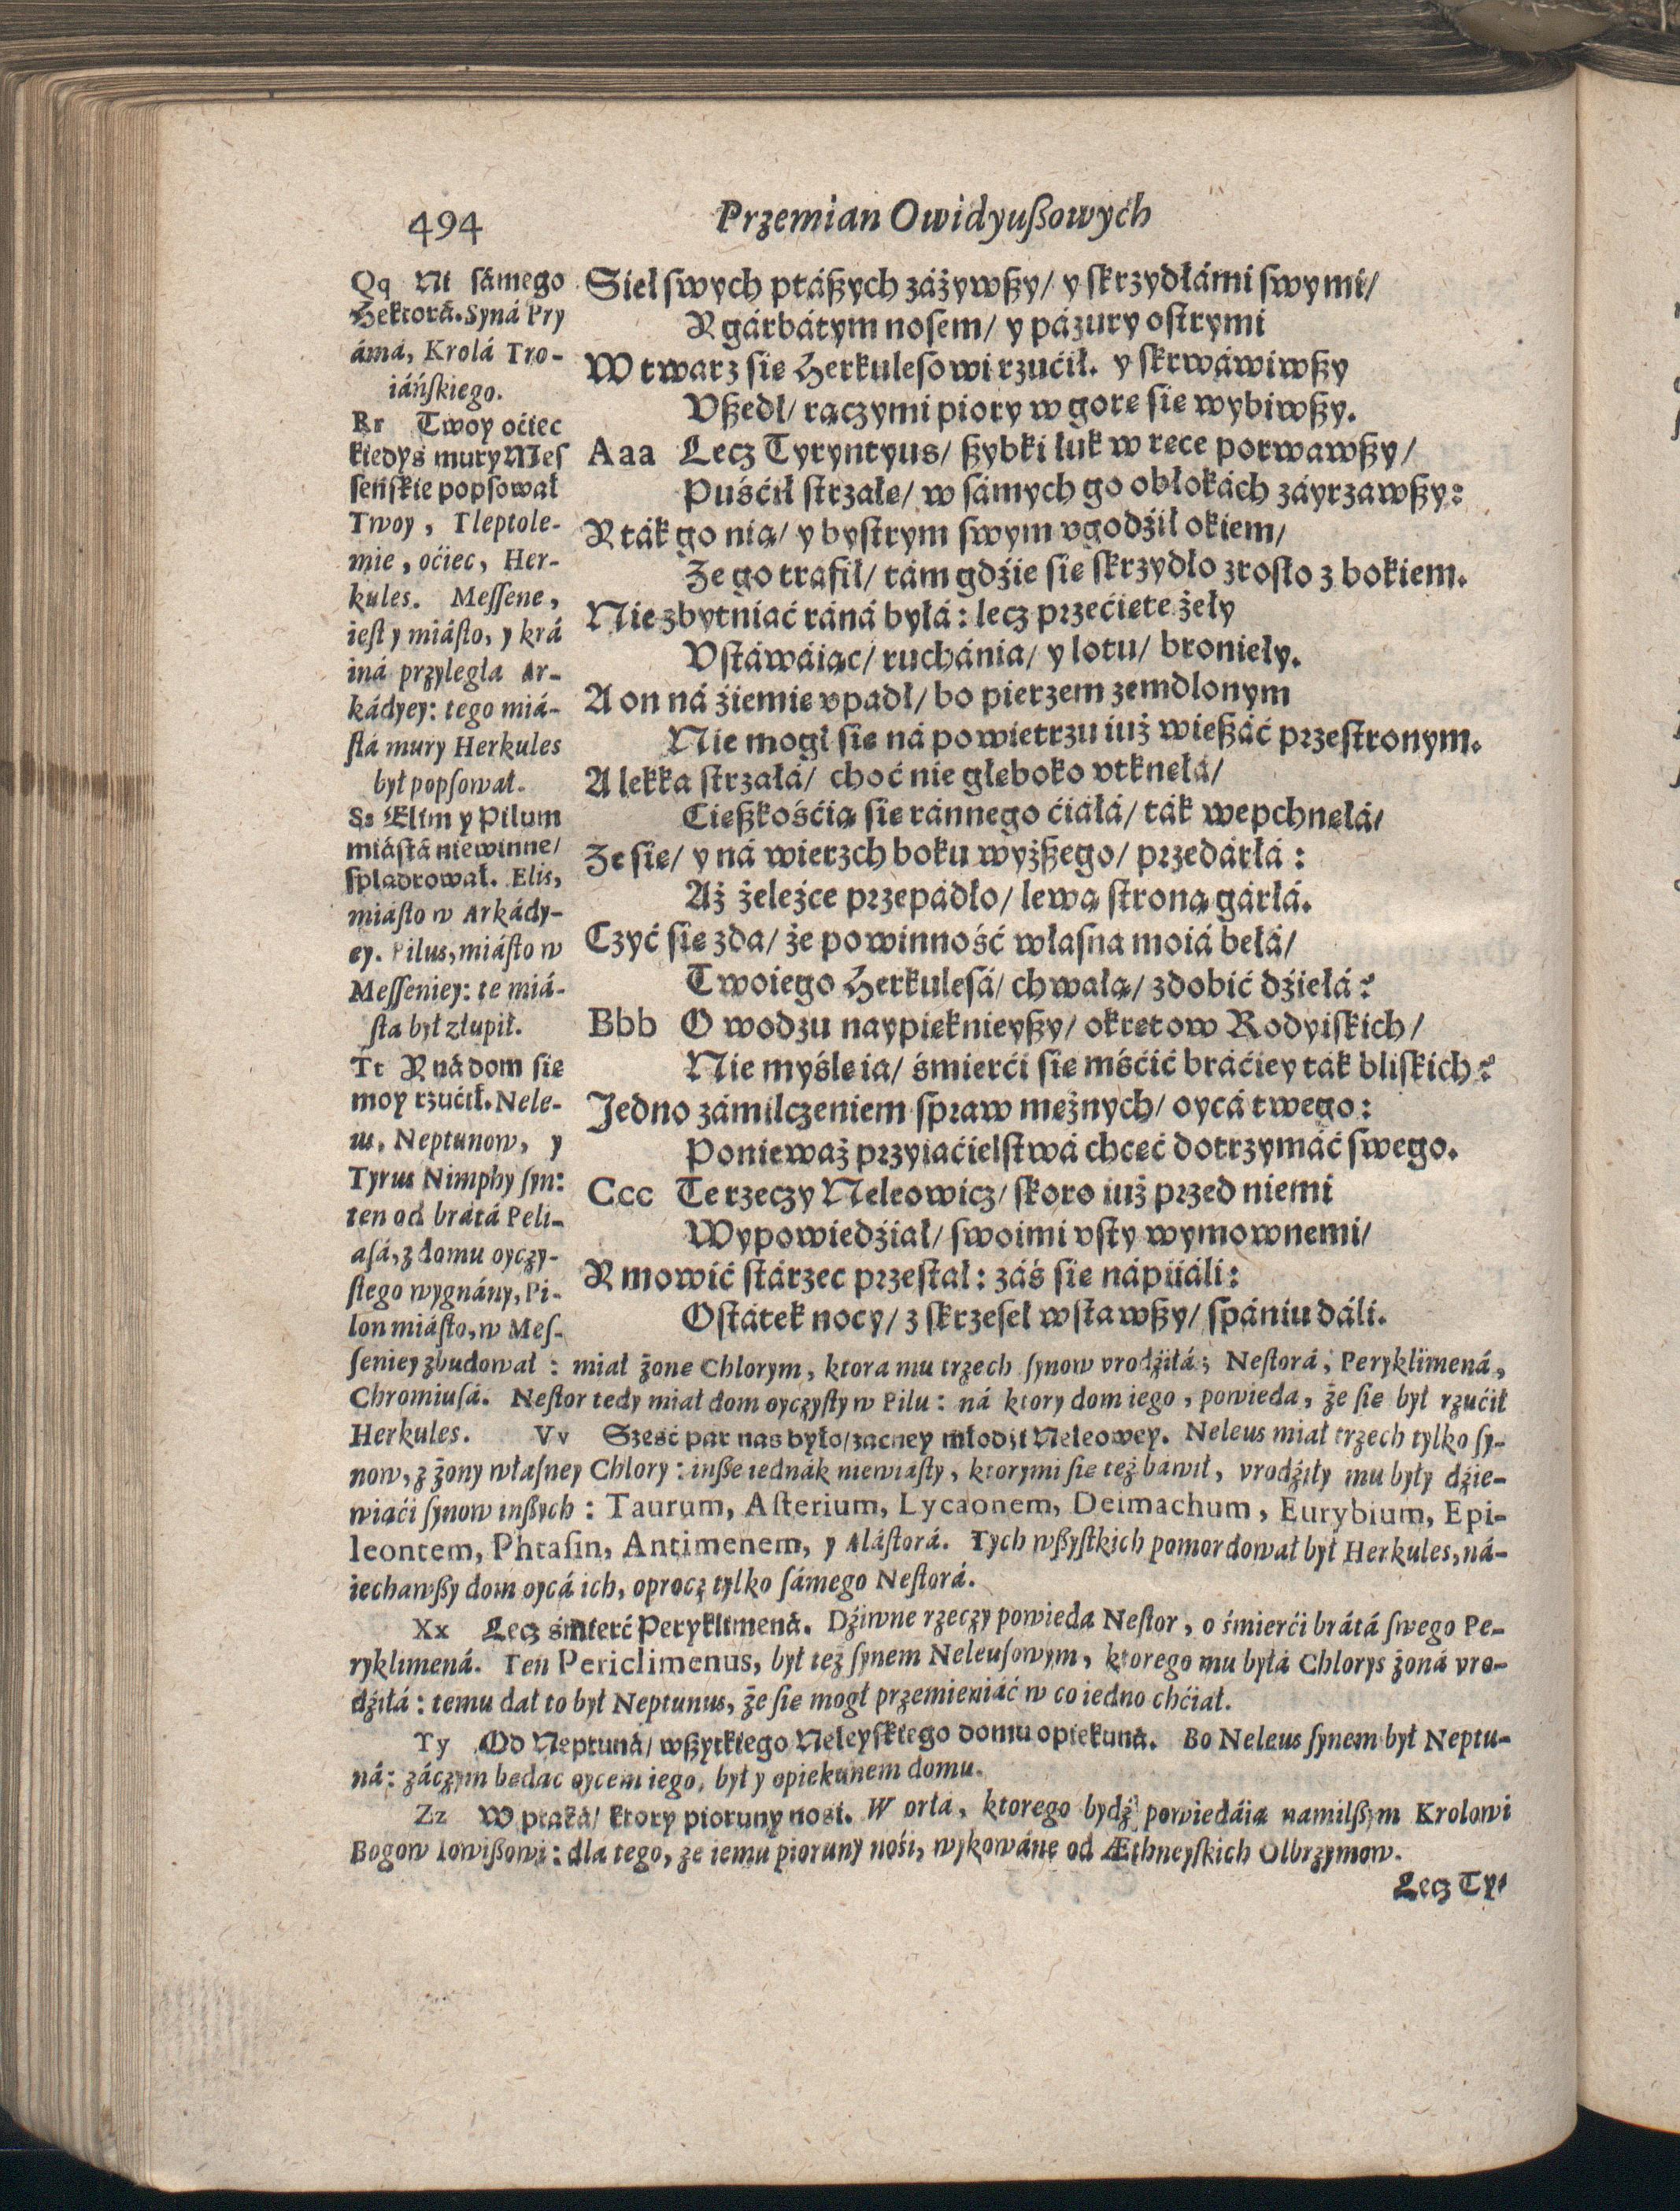 494
Przemian Owidyußowych
Qq Ni sámego
Hektorá. Syná Pry
ámá, Krolá Tro-
iáńſkiego.
Rr Twoy oćiec
kiedyś mury Meſ
ſeńſkie popſował
Twoy, Tleptole-
mie, oćiec, Her-
kules. Meſſene,
ieſt y miáſto, y krá
iná przyległa Ar-
kádyey: tego miá-
ſtá mury Herkules
był popſował.
Ss Elim y Pilum
miáſtá niewinne/
ſplądrował. Elis,
miáſto w Arkády-
ey. Pilus, miáſto w
Meſſeniey: te miá-
ſta był złupił.
Tt Y ná dom ſie
moy rzućił. Nele-
us, Neptunow, y
Tyrus Nimphy ſyn:
ten od brátá Peli-
aſá, z domu oyczy-
ſtego wygnány, Pi-
lon miáſto, w Meſ-
Sieł ſwych ptáßych záżywßy/ y ſkrzydłámi ſwymi/
Y gárbátym noſem/ y pázury oſtrymi
W twarz ſie Herkuleſowi rzućił. y ſkrwáwiwßy
Vßedł/ rączymi piory w gorę ſie wybiwßy.
Aaa Lecz Tyryntyus/ ßybki łuk w ręce porwawßy/
Puśćił ſtrzałę/ w ſámych go obłokách záyrzawßy:
Y ták go nią/ y byſtrym ſwym vgodźił okiem/
Że go trafił/ tám gdźie ſie ſkrzydło zroſło z bokiem.
Nie zbytniać ráná byłá: lecz przećięte żeły
Vſtáwáiąc/ ruchánia/ y lotu/ bronieły.
A on ná źiemię vpadł/ bo pierzem zemdlonym
Nie mogł ſie ná powietrzu iuż wießáć przeſtronym.
A lekka ſtrzałá/ choć nie głęboko vtknęłá/
Ćięßkośćią ſie ránnego ćiáłá/ ták wepchnęłá/
Że ſie/ y ná wierzch boku wyżßego/ przedárłá:
Aż żeleźce przepádło/ lewą ſtroną gárłá.
Czyć ſie zda/ że powinność własna moiá bełá/
Twoiego Herkuleſá/ chwałą/ zdobić dźiełá?
Bbb O wodzu naypięknieyßy/ okrętow Rodyiſkich/
Nie myślę ia/ śmierći ſie mśćić bráćiey ták bliſkich?
Jedno zámilczeniem ſpraw mężnych/ oycá twego:
Ponieważ przyiaćielſtwá chcęć dotrzymáć ſwego.
Ccc Te rzeczy Neleowicz/ ſkoro iuż przed niemi
Wypowiedźiał/ ſwoimi vſty wymownemi/
Y mowić ſtárzec przeſtał: záś ſie nápiiáli:
Oſtátek nocy/ z ſkrzeſeł wſtawßy/ ſpániu dáli.
ſeniey zbudował: miał żonę Chlorym, ktora mu trzech ſynow vrodźiłá; Neſtorá, Peryklimená,
Chromiuſá. Neſtor tedy miał dom oyczyſty w Pilu: ná ktory dom iego, powieda, że ſie był rzućił
Herkules. Vv Sześć par nas było/ zacney młodźi Neleowey. Neleus miał trzech tylko ſy-
now, z żony właſney Chlory: inße iednák niewiáſty, ktorymi ſie też báwił, vrodźiły mu były dźie-
wiąći ſynow inßych: Taurum, Aſterium, Lycaonem, Deimachum, Eurybium, Epi-
leontem, Phtaſin, Antimenem, y Aláſtorá. Tych wßyſtkich pomordował był Herkules, ná-
iechawßy dom oycá ich, oprocz tylko ſámego Neſtorá.
Xx Lecz śmierć Peryklimená. Dźiwne rzeczy powieda Neſtor, o śmierći brátá ſwego Pe-
ryklimená. Ten Periclimenus, był też ſynem Neleuſowym, ktorego mu byłá Chlorys żoná vro-
dźiłá: temu dał to był Neptunus, że ſie mogł przemieniáć w co iedno chćiał.
Yy Od Neptuná/ wßytkiego Neleyſkiego domu opiekuná. Bo Neleus ſynem był Neptu-
ná: záczym będąc oycem iego, był y opiekunem domu.
Zz W ptaká/ ktory pioruny nośi. W orłá, ktorego bydź powiedáią namilßym Krolowi
Bogow Iowißowi: dla tego, że iemu pioruny nośi, wykowáne od Æthneyſkich Olbrzymow.
Lecz Ty-